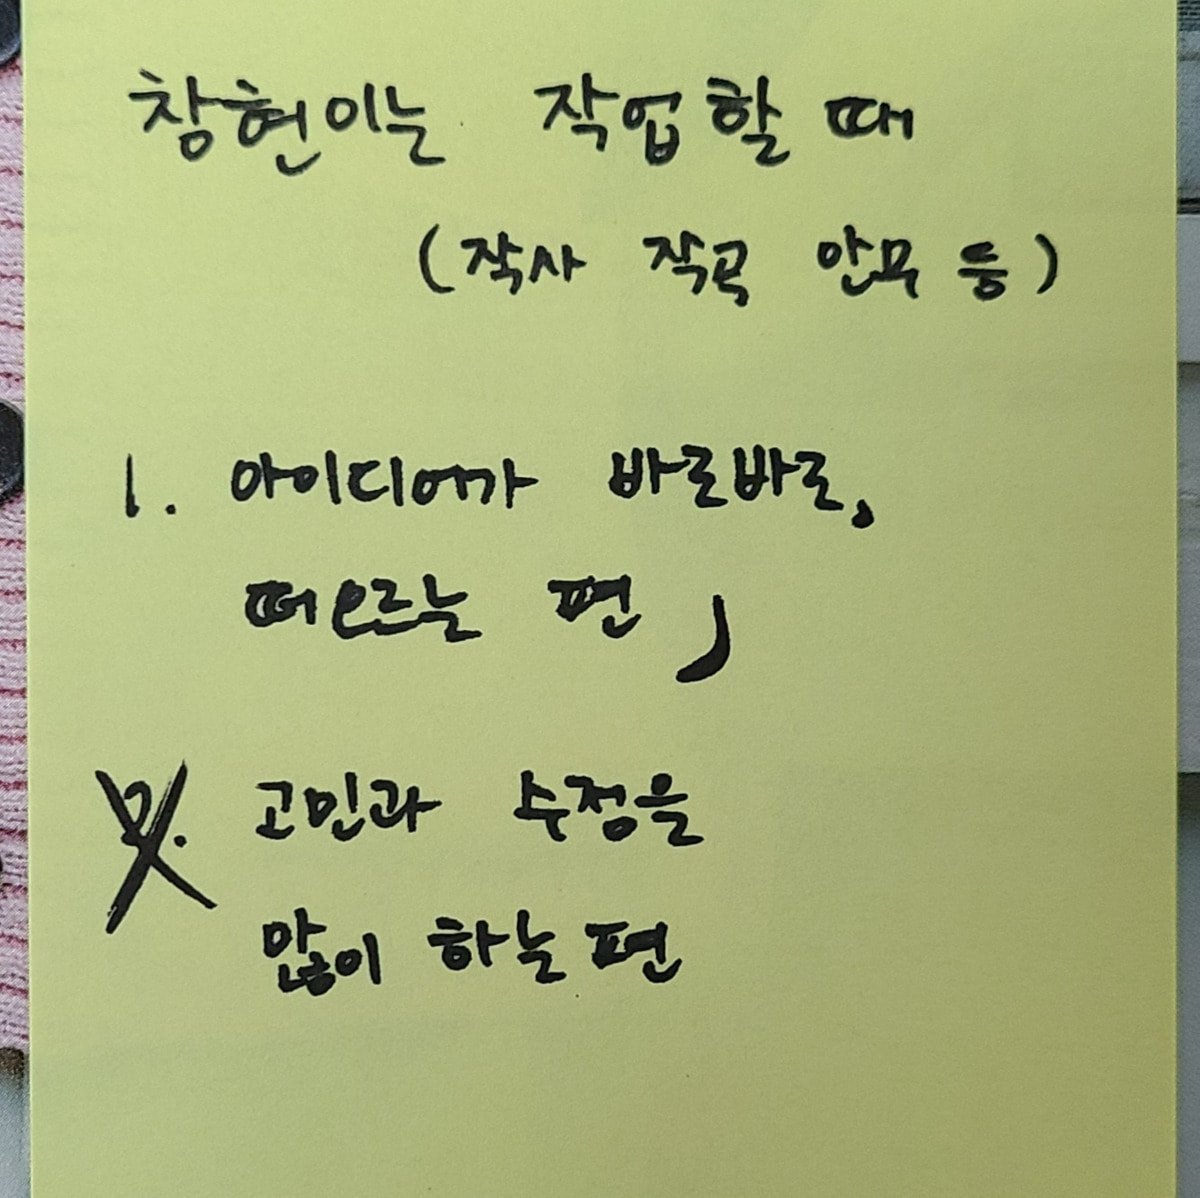 창현이는 작업할 때
(작사 작곡 안무 등)
1. 아이디어가 바로바로,
떠오르는 편,
2. 고민과 수정을
많이 하는 편